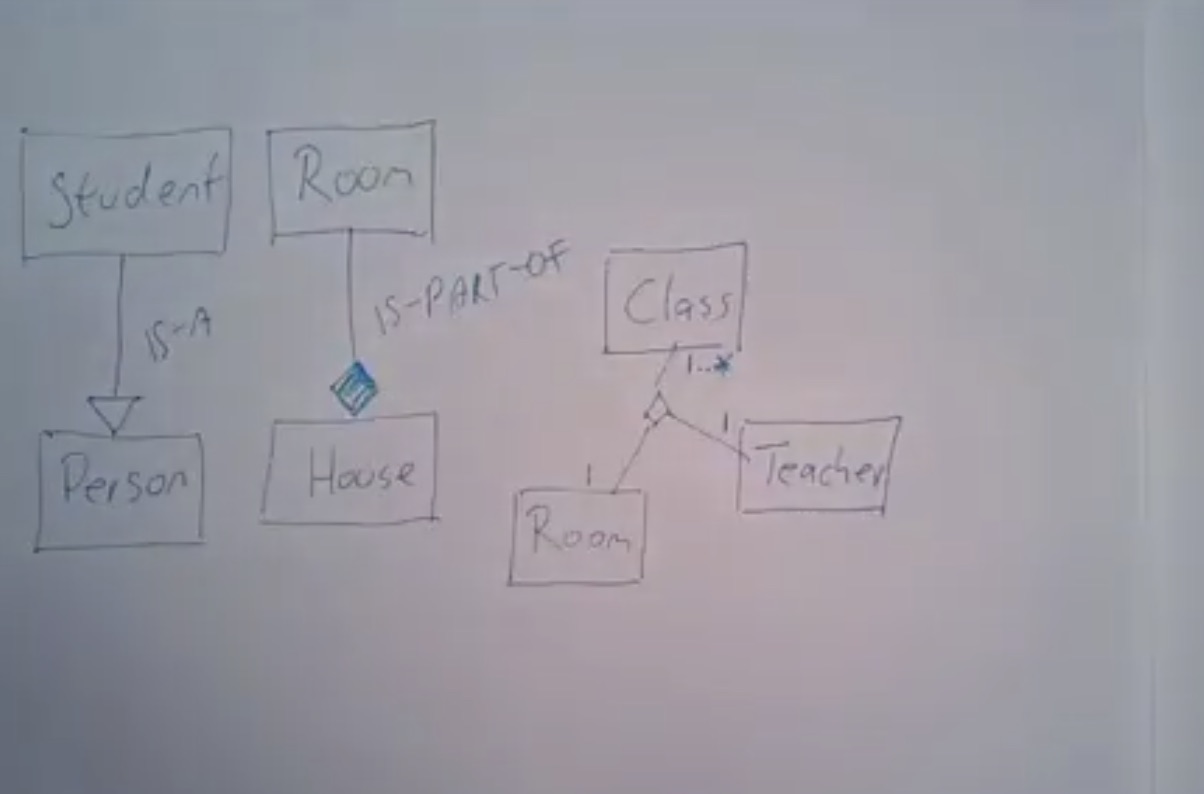 Student
IS-A
Person
Room
IS-PART-OF
House
Class
1..*
1
Teacher
1
Room